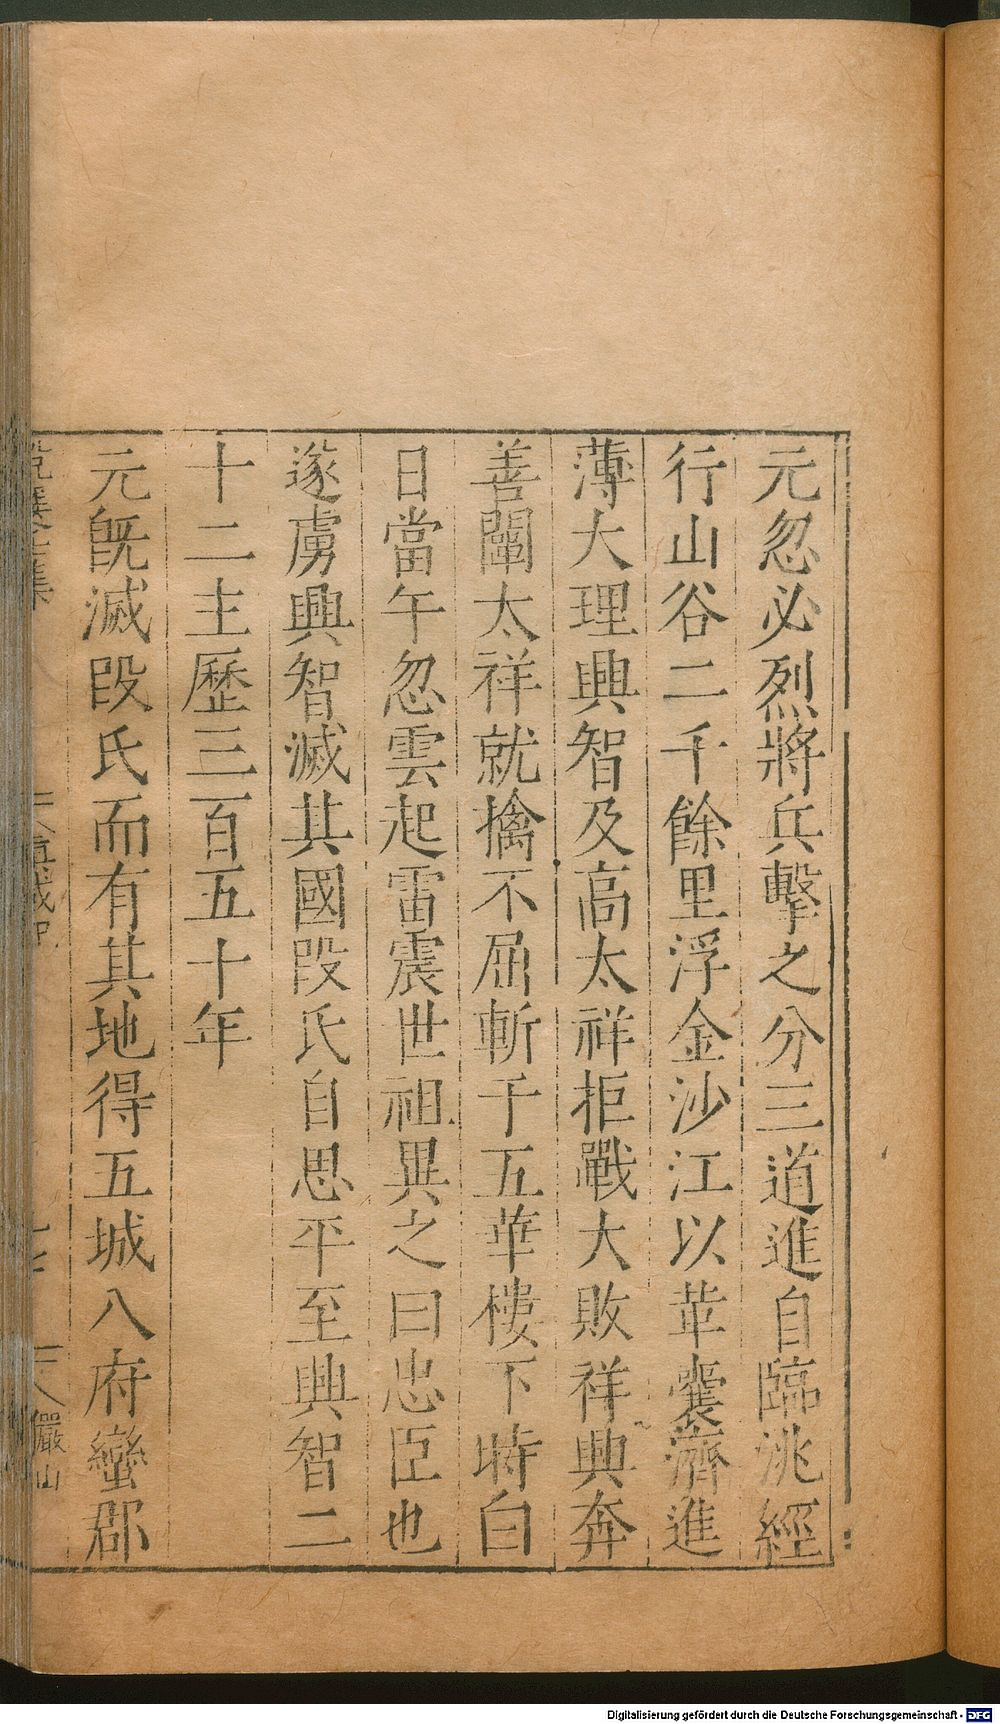 元忽必烈將兵擊之分三道進自臨洮經
行山谷二千餘里浮金沙江以革囊濟進
薄大理興智及高太祥拒戰大敗祥興奔
善闡太祥就擒不屈斬于五華樓下時白
日當午忽雲起雷震世祖異之曰忠臣也
遂虜興智滅其國段氏自思平至興智二
十二主歷三百五十年
元旣滅段氏而有其地得五城八府蠻郡
儼山
Digitalisierung gefördert durch die Deutsche Forschungsgemeinschaft - DFG